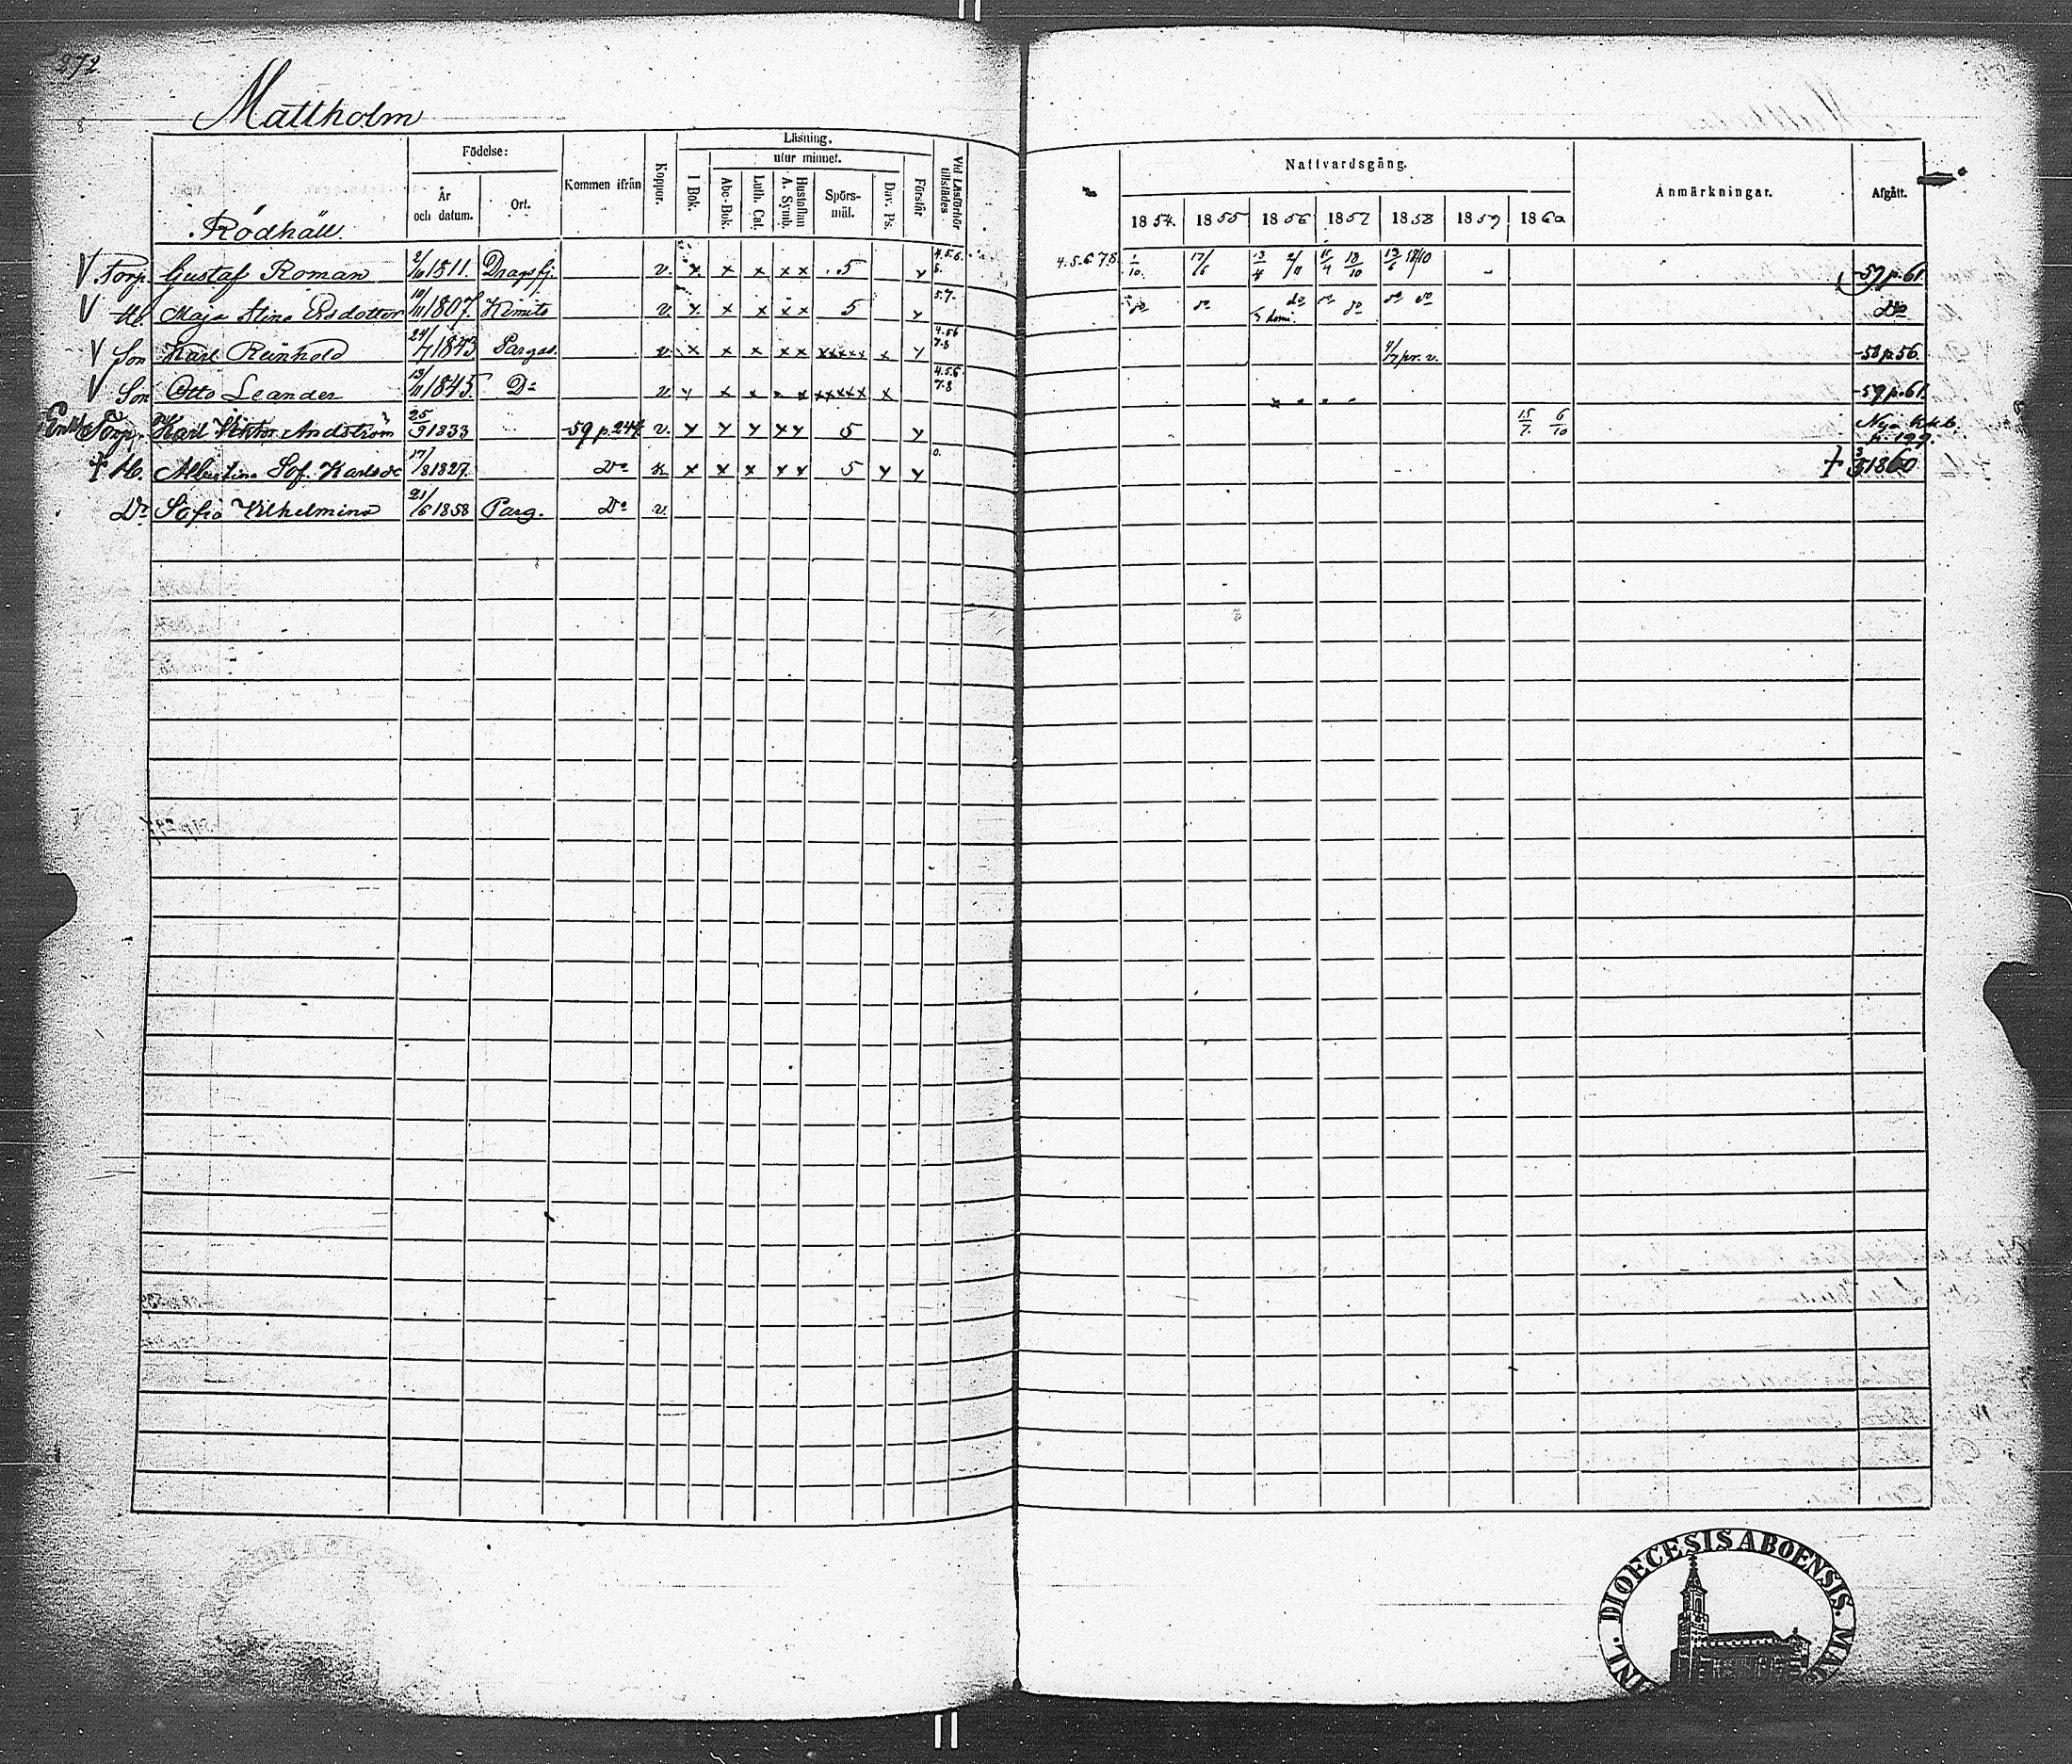 272
Mattholm
Födelse:
Läsning,
utur minnet.
År och datum.
Ort.
Kommen ifrån
Koppor.
I Bok.
Abc-Bok.
Luth. Cat.
Hustaflan A. Symb.
Spörs-mål.
Dav. Ps.
Förstår
Vid Läsförhör tillstädes
Nattvardsgång.
1854. 1855 1856 1857 1858 1859 1860
Anmärkningar.
Afgått.
Rödhäll.
V Torp. Gustaf Roman 2/10 1811. Dragsfj. v. x x x x x 5 y 4.5.6. 4.5.6.7.8. 1/10. 17/6 13/10 -59 p. 61.
V H. Maja Stina 10/11 1807. Kimito v. x x x x x 5 y 5.7. do do do do do do do do
V Son Karl Reinhold 24/7 1843 Pargas. v. x x x x x xxxxx x y 4.56 7.8 4/7 pr. v. -58 p. 56.
V Son Otto Leander 13/11 1845 Do v. y x x x x xxxxx x 4.5.6. 7.8 -59 p. 61.
Torp. Karl Viktor Andström 25/9 1833 -59 p. 244. v. y y y y y 5 y 15/7. 6/10 Nya kkb. p. 199.
+ H. Albertina Sof. Karlsdr 17/8 1827. Do x x x y y 5 y y 0. + 1860
Dr Sofia Vilhelmina 21/6 1858 Parg. Do v.
DIOECESIS ABOENSIS.